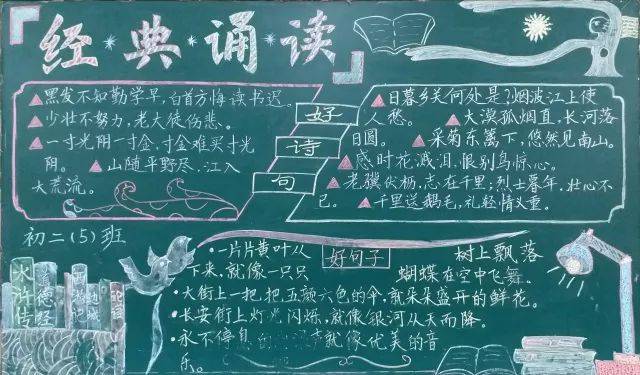 经典·诵读
▲黑发不知勤学早,白首方悔读书迟。
▲少壮不努力,老大徒伤悲。
▲一寸光阴一寸金,寸金难买寸光
阴。 ▲山随平野尽,江入
大荒流。
好
诗
句
▲日暮乡关何处是?烟波江上使
人愁。 ▲大漠孤烟直,长河落
日圆。 ▲采菊东篱下,悠然见南山。
▲感时花溅泪,恨别鸟惊心。
▲老骥伏枥,志在千里;烈士暮年,壮心不
已。 ▲千里送鹅毛,礼轻情义重。
初二(5)班
水浒传
道德经
西游记
边城
论语
好句子
·一片片黄叶从树上飘落
下来,就像一只只蝴蝶在空中飞舞。
·大街上一把把五颜六色的伞,就朵朵盛开的鲜花。
·长安街上灯光闪烁,就像银河从天而降。
·永不停息的 就像优美的音
乐。